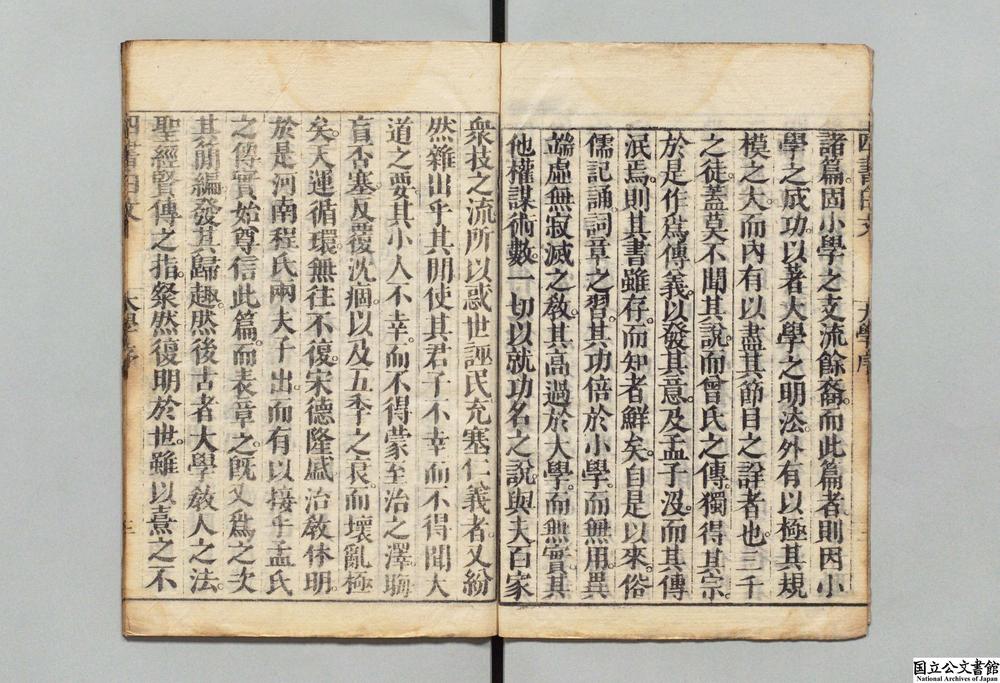 諸篇。固小學之支流餘裔。而此篇者則因小
學之成功。以著大學之明法。外有以極其規
模之大。而內有以盡其節目之詳者也。三千
之徒。蓋莫不聞其說。而曾氏之傳獨得其宗。
於是作爲傳義。以發其意。及孟子沒。而其傳
泯焉。則其書雖存。而知者鮮矣。自是以來。俗
儒記誦詞章之習。其功倍於小學。而無用。異
端虛無寂滅之敎。其高過於大學。而無實。其
他權謀術數。一切以就功名之說。與夫百家
衆技之流。所以惑世誣民充塞仁義者。又紛
然雜出乎其閒。使其君子不幸而不得聞大
道之要。其小人不幸。而不得蒙至治之澤。晦
盲否塞。反覆沈痼。以及五季之衰。而壞亂極
矣。天運循環。無往不復。宋德隆盛。治敎休明。
於是河南程氏兩夫子出。而有以接乎孟氏
之傳。實始尊信此篇。而表章之。旣又爲之次
其簡編。發其歸趣。然後古者大學敎人之法。
聖經賢傳之指。粲然復明於世。雖以熹之不
大學序
四書白文
大學序
国立公文書館
National Archives of Japan